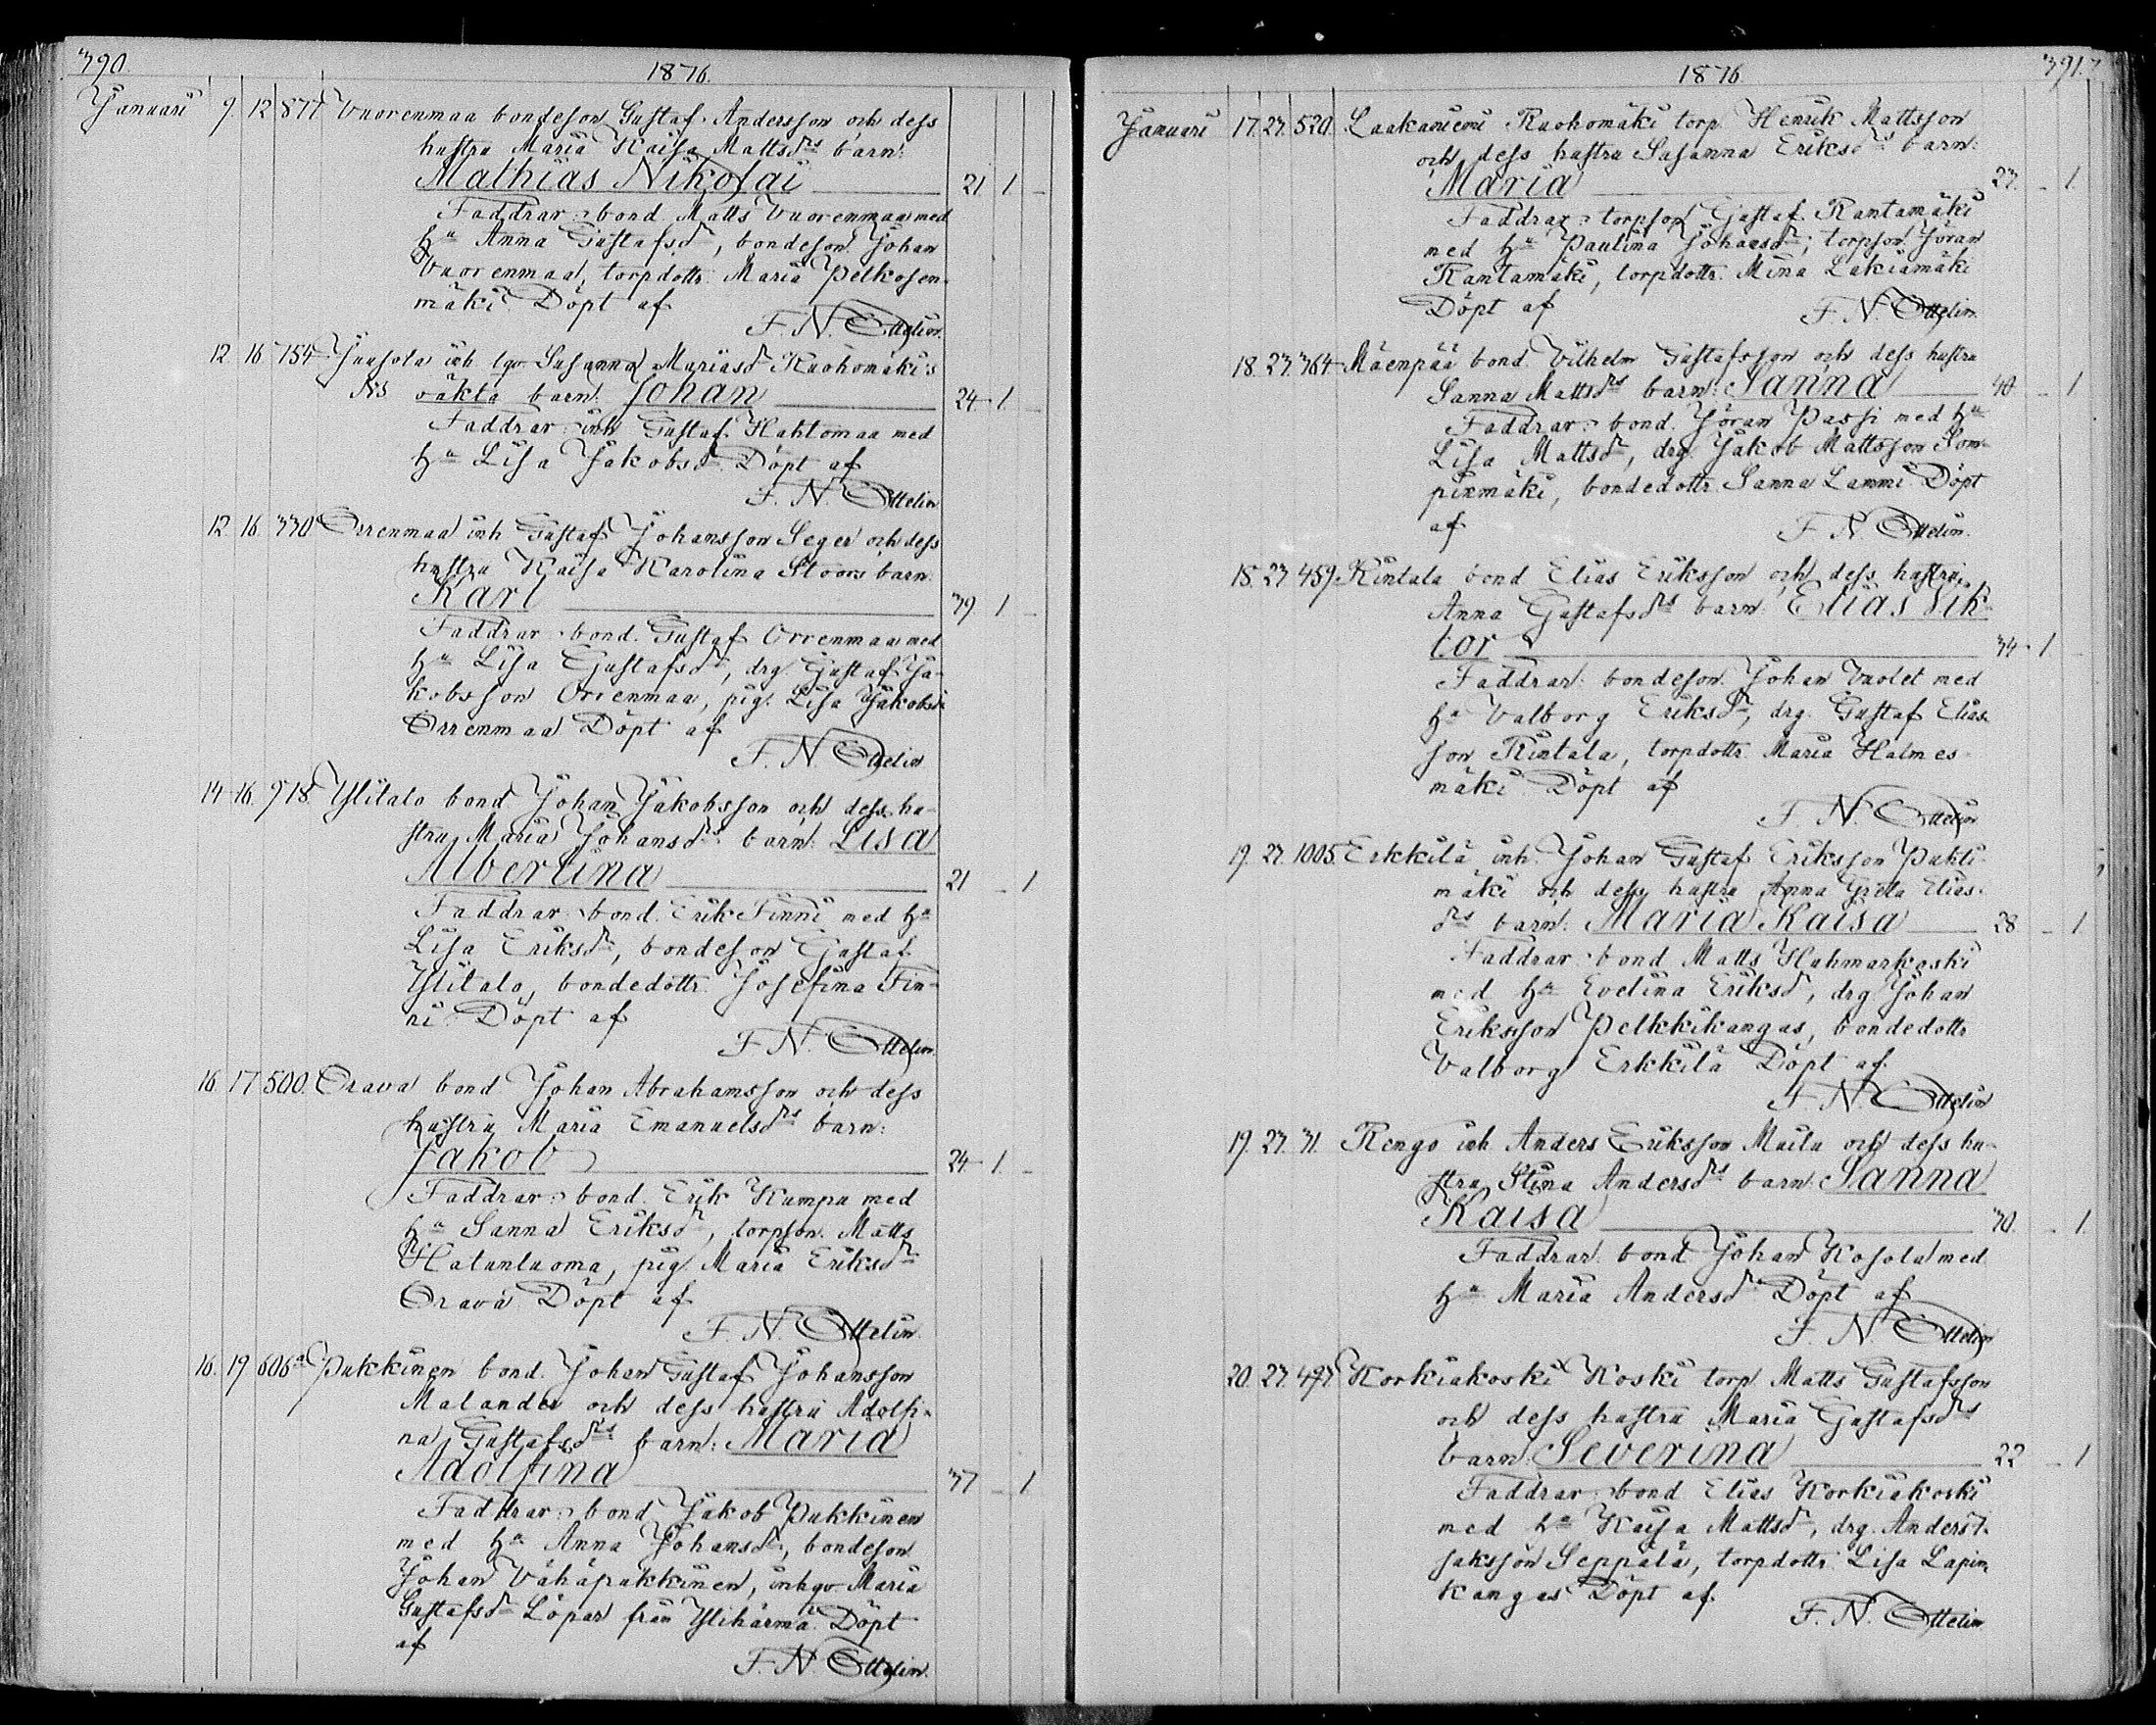 390.
1876.
Januari 9. 12 877 Vuorenmaa bondeson Gustaf Andersson och dess
hustru Maria Kaisa Mattsdrs barn:
Mathias Nikolai 21 1 –
Faddrar: bond. Matts Vuorenmaa med
ha Anna Gustafsdr, bondeson Johan
Vuorenmaa, torpdottr. Maria Pelkosen-
mäki Döpt af
F. N. Ottelin.
12. 16. 754 Juusola inh. Susanna Mariasdr Ruohomäki's
oäkta barn: Johan 24 1. –
Faddrar: inh Gustaf Hahtomaa med
ha Lisa Jakobsdr. Döpt af
F. N. Ottelin
12. 16. 330 Orrenmaa inh Gustaf Johansson Seger och dess
hustru Kaisa Karolina Stoors barn:
Karl 39 1 –
Faddrar: bond. Gustaf Orrenmaa med
ha Lisa Gustafsdr, drg. Gustaf Ja-
kobsson Orrenmaa, pig. Lisa Jakobsdr
Orrenmaa Döpt af
F. N. Ottelin
14. 16. 918. Ylitalo bond Johan Jakobsson och dess hu-
stru Maria Johansdrs barn: Lisa
Albertina 21 – 1
Faddrar: bond. Erik Finni med ha
Lisa Eriksdr, bondeson Gustaf
Ylitalo, bondedottr. Josefina Fin-
ni Döpt af
F. N. Ottelin.
16. 17 500. Orava bond Johan Abrahamsson och dess
hustru Maria Emanuelsdrs barn:
Jakob 24 1. –
Faddrar: bond. Erik Kumpu med
ha Sanna Eriksdr, torpson. Matts
Hatunluoma, pig. Maria Eriksdr
Orava Döpt af
F. N. Ottelin
16. 19 606a Pukkinen bond. Johan Gustaf Johansson
Malander och dess hustru Adolfi-
na Gustafsdrs barn: Maria
Adolfina 37 – 1
Faddrar: bond Jakob Pukkinen
med ha Anna Johansdr, bondeson
Johan Vähäpukkinen, inhqv. Maria
Gustafsdr Löpar från Ylihärmä Döpt
af
F. N. Ottelin.
1876.
391.
Januari 17. 23. 520. Laakaniemi Ruohomäki torp. Henrik Mattsson
och dess hustru Susanna Eriksdrs barn:
Maria 27. – 1.
Faddrar: torpson Gustaf Rantamäki
med ha Paulina Johansdr; torpson Jöran
Rantamäki, torpdottr. Mina Lakiamäki
Döpt af F. N. Ottelin.
18. 23. 364 Mäenpää bond Vilhelm Gustafsson och dess hustru
Sanna Mattsdrs barn: Sanna 40 – 1
Faddrar: bond. Jöran Passi med ha
Lisa Mattsdr, drg. Jakob Mattsson Som-
pinmäki, bondedottr Sanna Lammi Döpt
af F. N. Ottelin.
15. 23 459. Rintala bond Elias Eriksson och dess hustru
Anna Gustafsdrs barn: Elias Vik-
tor 34 1.
Faddrar: bondeson Johan Vuolet med
ha Valborg Eriksdr, drg. Gustaf Elias-
son Rintala, torpdottr Maria Halmes-
mäki Döpt af
F. N. Ottelin
19. 23. 1005. Erkkilä inh. Johan Gustaf Eriksson Pukti-
mäki och dess hustru Anna Greta Elias-
drs barn: Maria Kaisa 28 – 1
Faddrar: bond Matts Huhmarkoski
med ha Evelina Eriksdr, drg Johan
Eriksson Pelkkikangas, bondedottr
Valborg Erkkilä Döpt af
F. N. Ottelin
19. 23. 31. Rengo inh Anders Eriksson Maila och dess hu-
stru Stina Andersdrs barn: Sanna
Kaisa 30. – 1
Faddrar: bond Johan Kosola med
ha Maria Andersdr Döpt af
F. N. Ottelin
20. 23. 497 Korkiakoski Koski torp. Matts Gustafsson
och dess hustru Maria Gustafsdrs
barn: Severina 22 – 1
Faddrar: bond Elias Korkiakoski
med ha Kaisa Mattsdr, drg. Anders I-
saksson Seppälä, torpdottr Lisa Lapin-
kangas Döpt af.
F. N. Ottelin